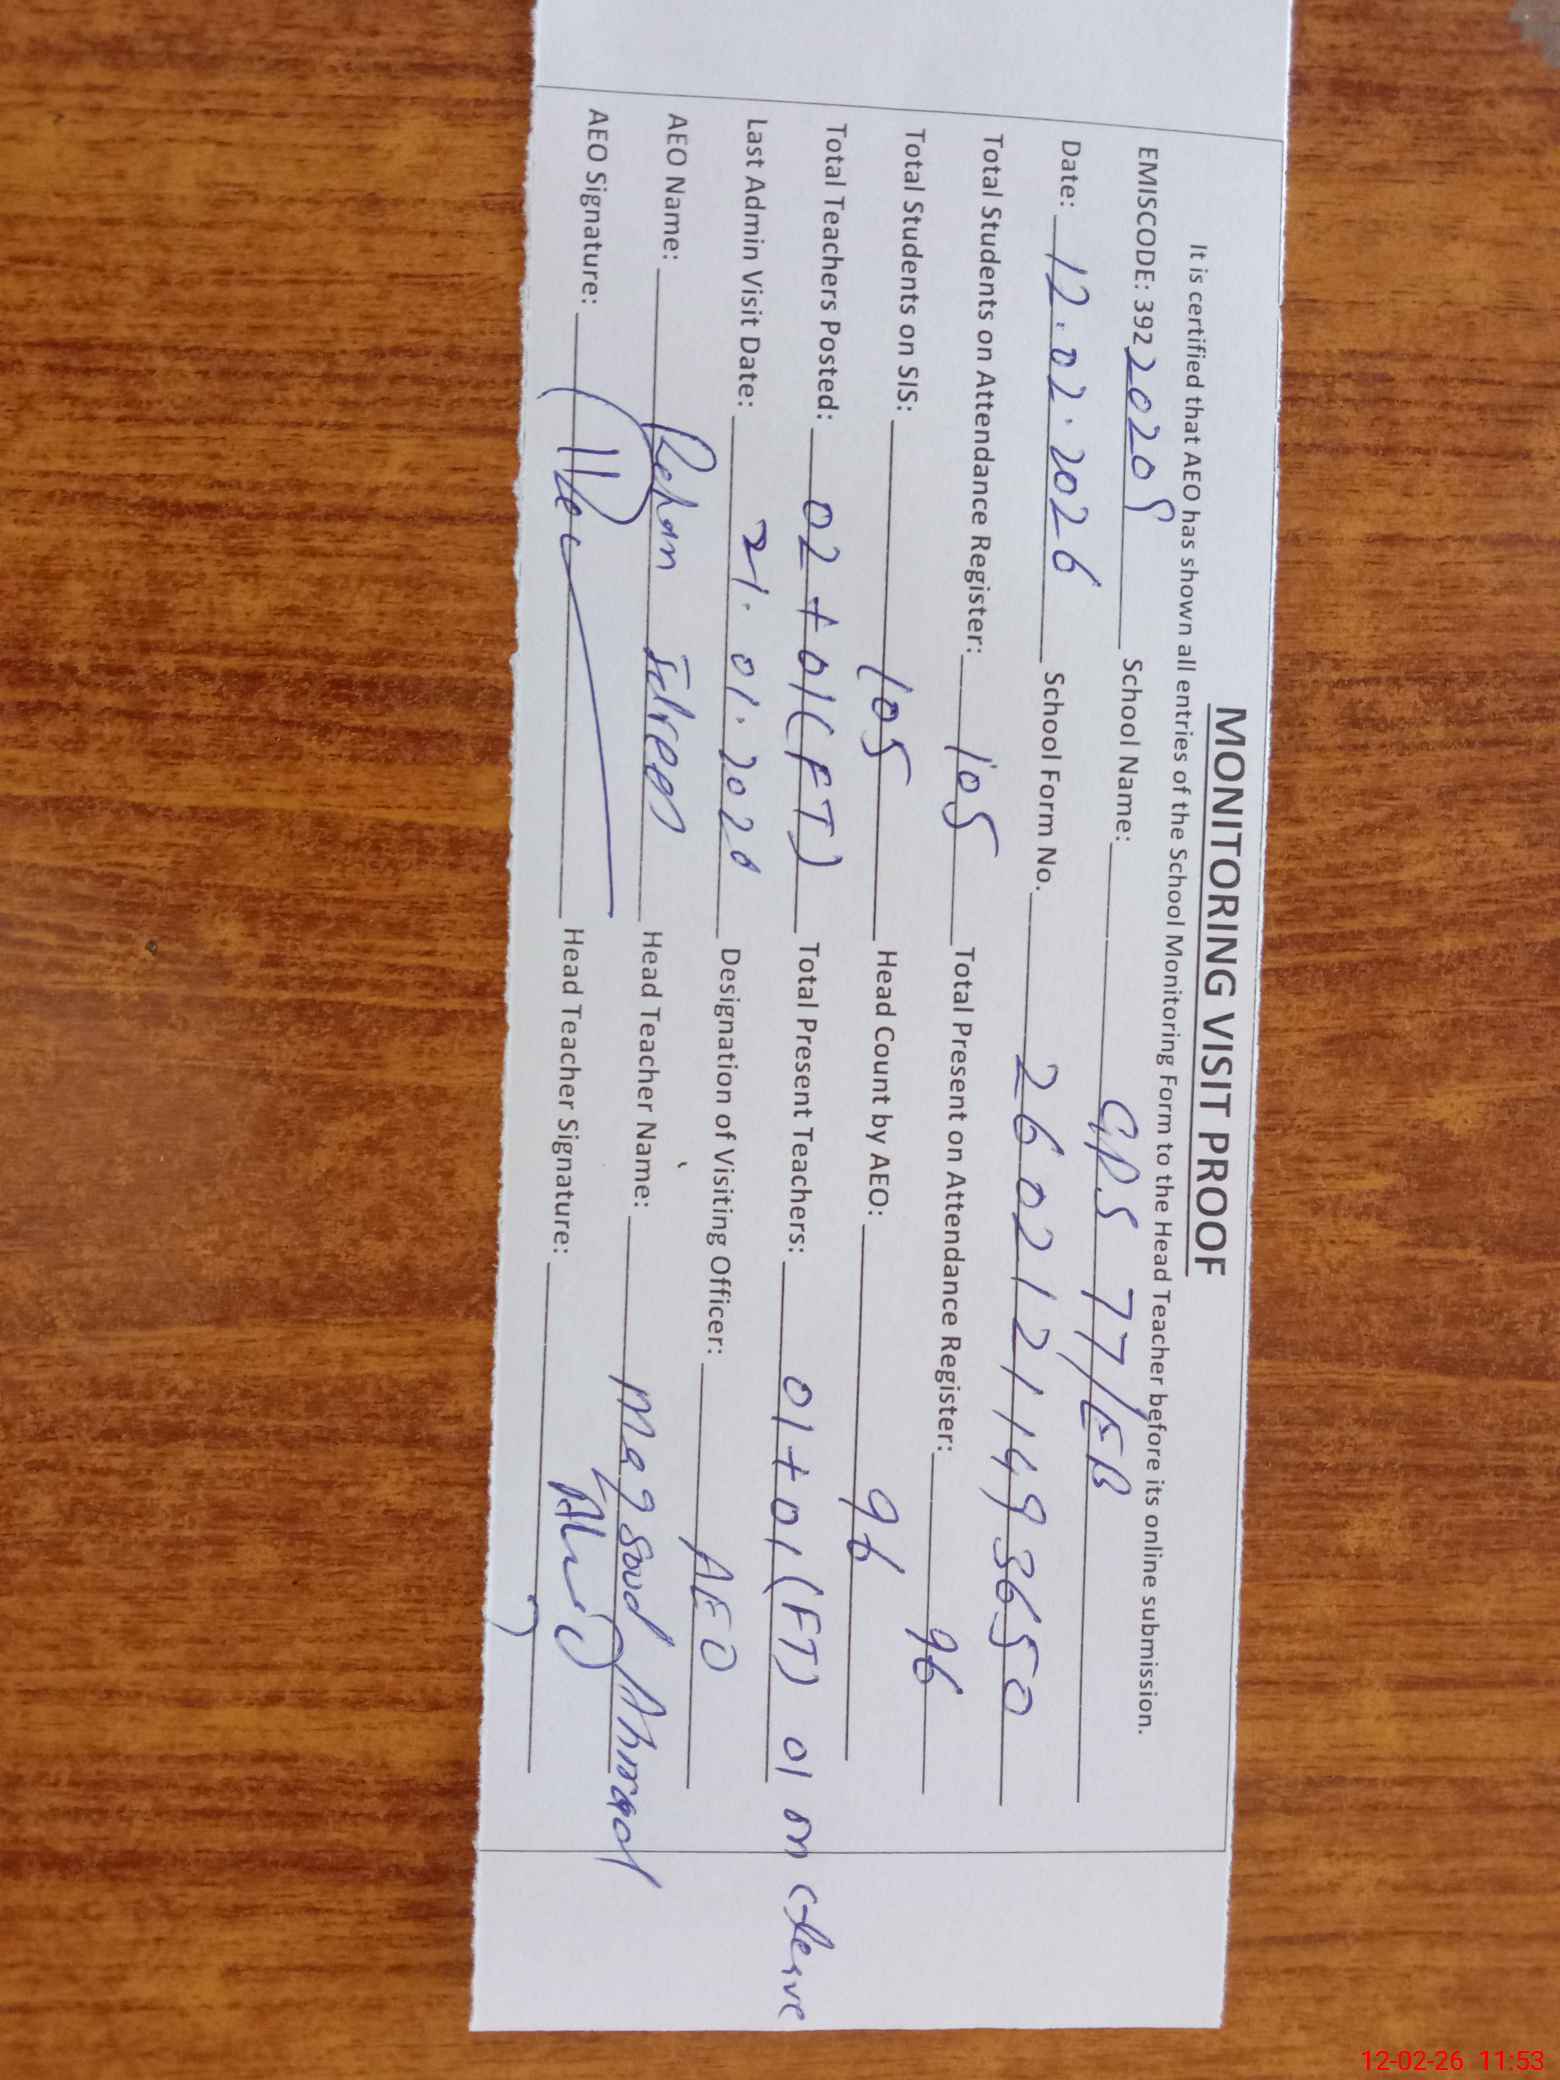 MONITORING VISIT PROOF
It is certified that AEO has shown all entries of the School Monitoring Form to the Head Teacher before its online submission.
EMISCODE: 392 20209 School Name: GPS 77/EB
Date: 12.02.2026 School Form No. 2602121493650
Total Students on Attendance Register: 105 Total Present on Attendance Register: 96
Total Students on SIS: 105 Head Count by AEO: 96
Total Teachers Posted: 02 + 01(FT) Total Present Teachers: 01 + 01(FT) 01 on Cleave
Last Admin Visit Date: 21.01.2026 Designation of Visiting Officer: AEO
AEO Name: Rehan Head Teacher Name: Maqsood Ahmad
AEO Signature: Head Teacher Signature:
12-02-26 11:53